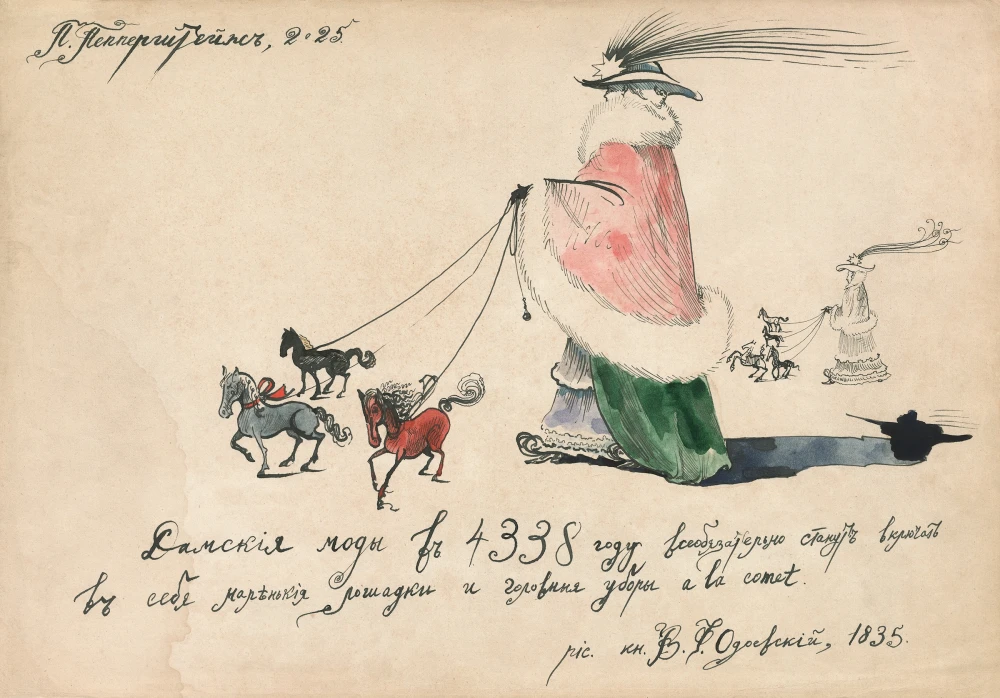 П. Пепперштейнъ, 2025.
Дамскія моды въ 4338 году: всеобязательно станутъ включать
въ себя маленькія лошадки и головныя уборы a la comet.
ріс. кн. В. Ѳ. Одоевскій, 1835.